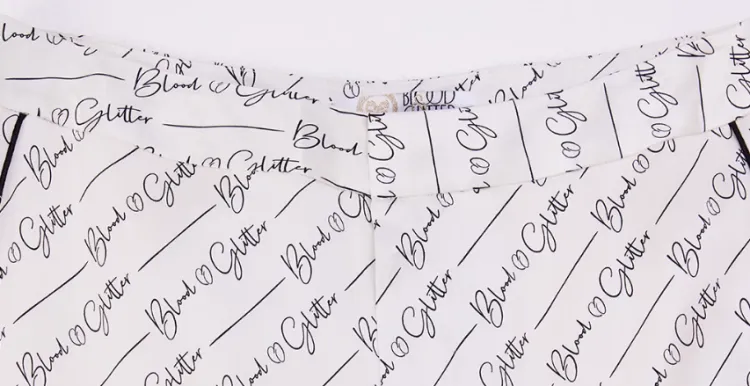 Blood
Blood Glitter
BLOOD
GLITTER
Glitter
Blood
Glitter
Blood
Blood Glitter
Blood Glitter
Blood Glitter
Blood Glitter
Blood Glitter
Blood Glitter
Blood Glitter
Blood Glitter
Glitter
Glitter
Blood
Blood